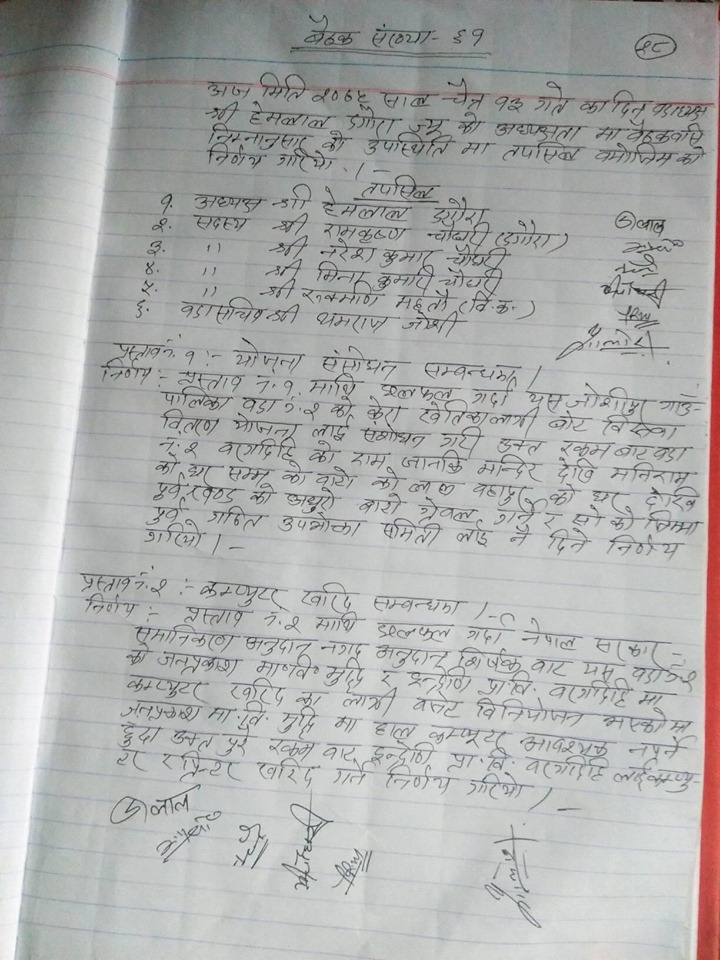 बैठक संख्या - ६१
१८
आज मिति २०७५ साल चैत्र १३ गते का दिन वडाध्यक्ष
श्री हेमलाल डगौरा ज्यू को अध्यक्षता मा बैठक बसि
निम्नानुसार को उपस्थिति मा तपसिल वमोजिम को
निर्णय गरियो ।-
तपसिल
१. अध्यक्ष श्री हेमलाल डगौरा
२. सदस्य श्री रामकृष्ण चौधरी (डगौरा)
३. " श्री नरेश कुमार चौधरी
४. " श्री मिना कुमारी चौधरी
५. " श्री रुक्मणि महतो (वि.क.)
६. वडा सचिव श्री धमराज जोशी
प्रस्ताव नं. १ :- योजना संसोधन सम्वन्धमा ।
निर्णय :- प्रस्ताव नं. १ माथि छलफल गर्दा यस जोशीपुर गाउँ-
पालिका वडा नं. २ को केरा खेतिका लागी बोट बिरुवा
वितरण योजना लाई संसोधन गरी उक्त रकम बाट वडा
नं. २ बर्गदिहि को राम जानकि मन्दिर देखि मनिराम
को घर सम्म को बाटो को लल बहादुर को घर देखि
पुर्व खण्ड को अधुरो बाटो ग्रेवल गर्ने र सो को जिम्मा
पुर्व गठित उपभोक्ता समिती लाई नै दिने निर्णय
गरियो ।-
प्रस्ताव नं. २ :- कम्प्युटर खरिद सम्वन्धमा ।-
निर्णय :- प्रस्ताव नं. २ माथि छलफल गर्दा नेपाल सरकार -
समानिकरण अनुदान नगद अनुदान शिर्षक बाट यस वडा नं. २
को जनप्रकाश मा.वि. मुढि र इन्द्रेणि प्रा.वि. बर्गदिहि मा
कम्प्युटर खरिद का लागी बजेट विनियोजन भएकोमा
जनप्रकाश मा.वि. मुढि मा हाल कम्प्युटर आवश्यक नपर्ने
हुँदा उक्त पुरै रकम बाट इन्द्रेणी प्रा.वि. बर्गदिहि लाई कम्प्यु-
टर र प्रिन्टर खरिद गर्ने निर्णय गरियो ।-